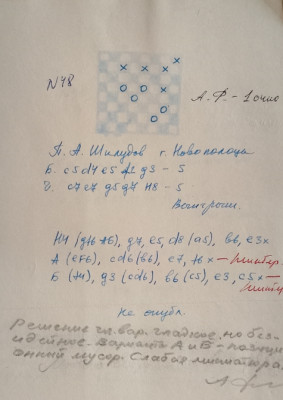 N 48
А.Ф. - 1 очко
П. А. Шклудов г. Новополоцк
Б. c5 d4 e5 g3 - 5
Ч. c7 e7 g5 g7 h8 - 5
Выигрыш.
g7, e5, d8 (a5), b6, e3x
А (ef6), cd6 (b6), e7, - миниатюр.
Б g3 (cd6), b6 (c5), e3, c5x - миниатюр
Не опубл.
Решение гл. вар. гладкое, но без-
идейное. Варианты А и Б - позици-
онный мусор. Слабая миниатюра.